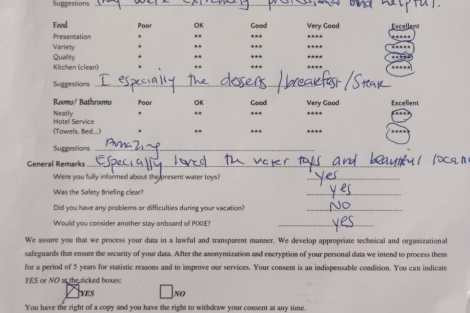 Suggestions they were extremely professional and helpful.
Food Poor OK Good Very Good Excellent
Presentation * ** *** **** *****
Variety * ** *** **** *****
Quality * ** *** **** *****
Kitchen (clean) * ** *** **** *****
Suggestions I especially the desserts / breakfast / Steak
Rooms/ Bathrooms Poor OK Good Very Good Excellent
Neatly * ** *** **** *****
Hotel Service
(Towels, Bed...) * ** *** **** *****
Suggestions Amazing
General Remarks Especially loved the water toys and beautiful
Were you fully informed about the present water toys? yes
Was the Safety Briefing clear? yes
Did you have any problems or difficulties during your vacation? NO
Would you consider another stay onboard of PIXIE? yes
We assure you that we process your data in a lawful and transparent manner. We develop appropriate technical and organizational
safeguards that ensure the security of your data. After the anonymization and encryption of your personal data we intend to process them
for a period of 5 years for statistic reasons and to improve our services. Your consent is an indispensable condition. You can indicate
YES or NO at the ticked boxes:
YES NO
You have the right of a copy and you have the right to withdraw your consent at any time.